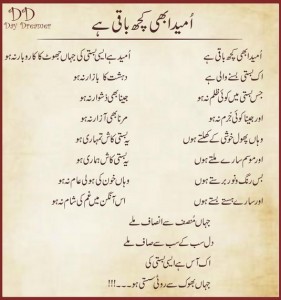 DD
Day Dreamer
اُمید ابھی کچھ باقی ہے
اُمید ابھی کچھ باقی ہے
اک بستی بسنے والی ہے
جس بستی میں کوئی ظلم نہ ہو
اور جینا کوئی جرم نہ ہو
وہاں پھول خوشی کے کھلتے ہوں
اور موسم سارے ملتے ہوں
بس رنگ و نور برستے ہوں
اور سارے ہنستے بستے ہوں
اُمید ہے ایسی بستی کی جہاں جھوٹ کا کاروبار نہ ہو
دہشت کا بازار نہ ہو
جینا بھی دشوار نہ ہو
مرنا بھی آزار نہ ہو
یہ بستی کاش تمہاری ہو
یہ بستی کاش ہماری ہو
وہاں خون کی ہولی عام نہ ہو
اس آنگن میں غم کی شام نہ ہو
جہاں مُنصف سے انصاف ملے
دل سب کے سب سے صاف ملے
اک آس ہے ایسی بستی کی
جہاں بھوک سے روٹی سستی ہو۔۔۔!!!